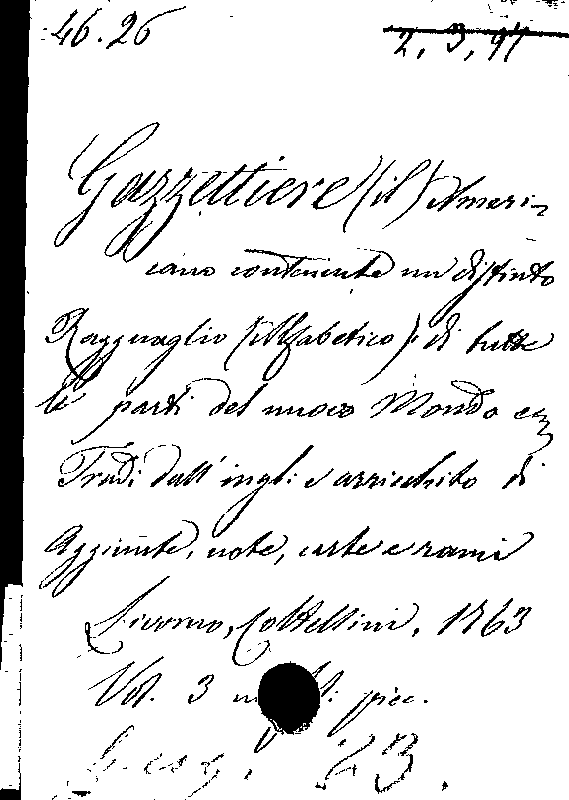 46.26
2, 3, 97
Gazzettiere (il) Ameri-
cano contenente un distinto
Ragguaglio (Alfabetico) di tutte
le parti del nuovo Mondo ec
Trad: dall' ingl: e arricchito di
Aggiunte, note, carte e rami
Livorno, Coltellini, 1763
Vol. 3 picc.
23.